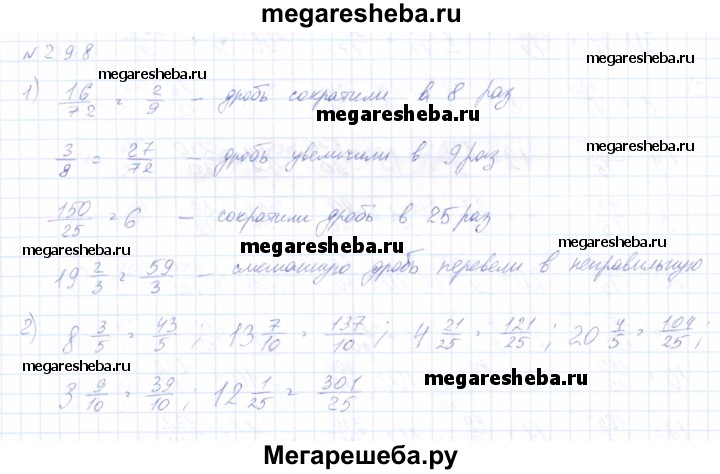 megaresheba.ru
№298
megaresheba.ru megaresheba.ru
1) 16/72 = 2/9 — дробь сократили в 8 раз
megaresheba.ru
3/8 = 27/72 — дробь увеличили в 9 раз
megaresheba.ru
150/25 = 6 — сократили дробь в 25 раз
megaresheba.ru megaresheba.ru megaresheba.ru
19 2/3 = 59/3 — смешанную дробь перевели в неправильную
2) 8 3/5 = 43/5; 13 7/10 = 137/10; 4 21/25 = 121/25; 20 4/5 = 104/25;
megaresheba.ru megaresheba.ru
3 9/10 = 39/10; 12 1/25 = 301/25
megaresheba.ru
Мегарешеба.ру